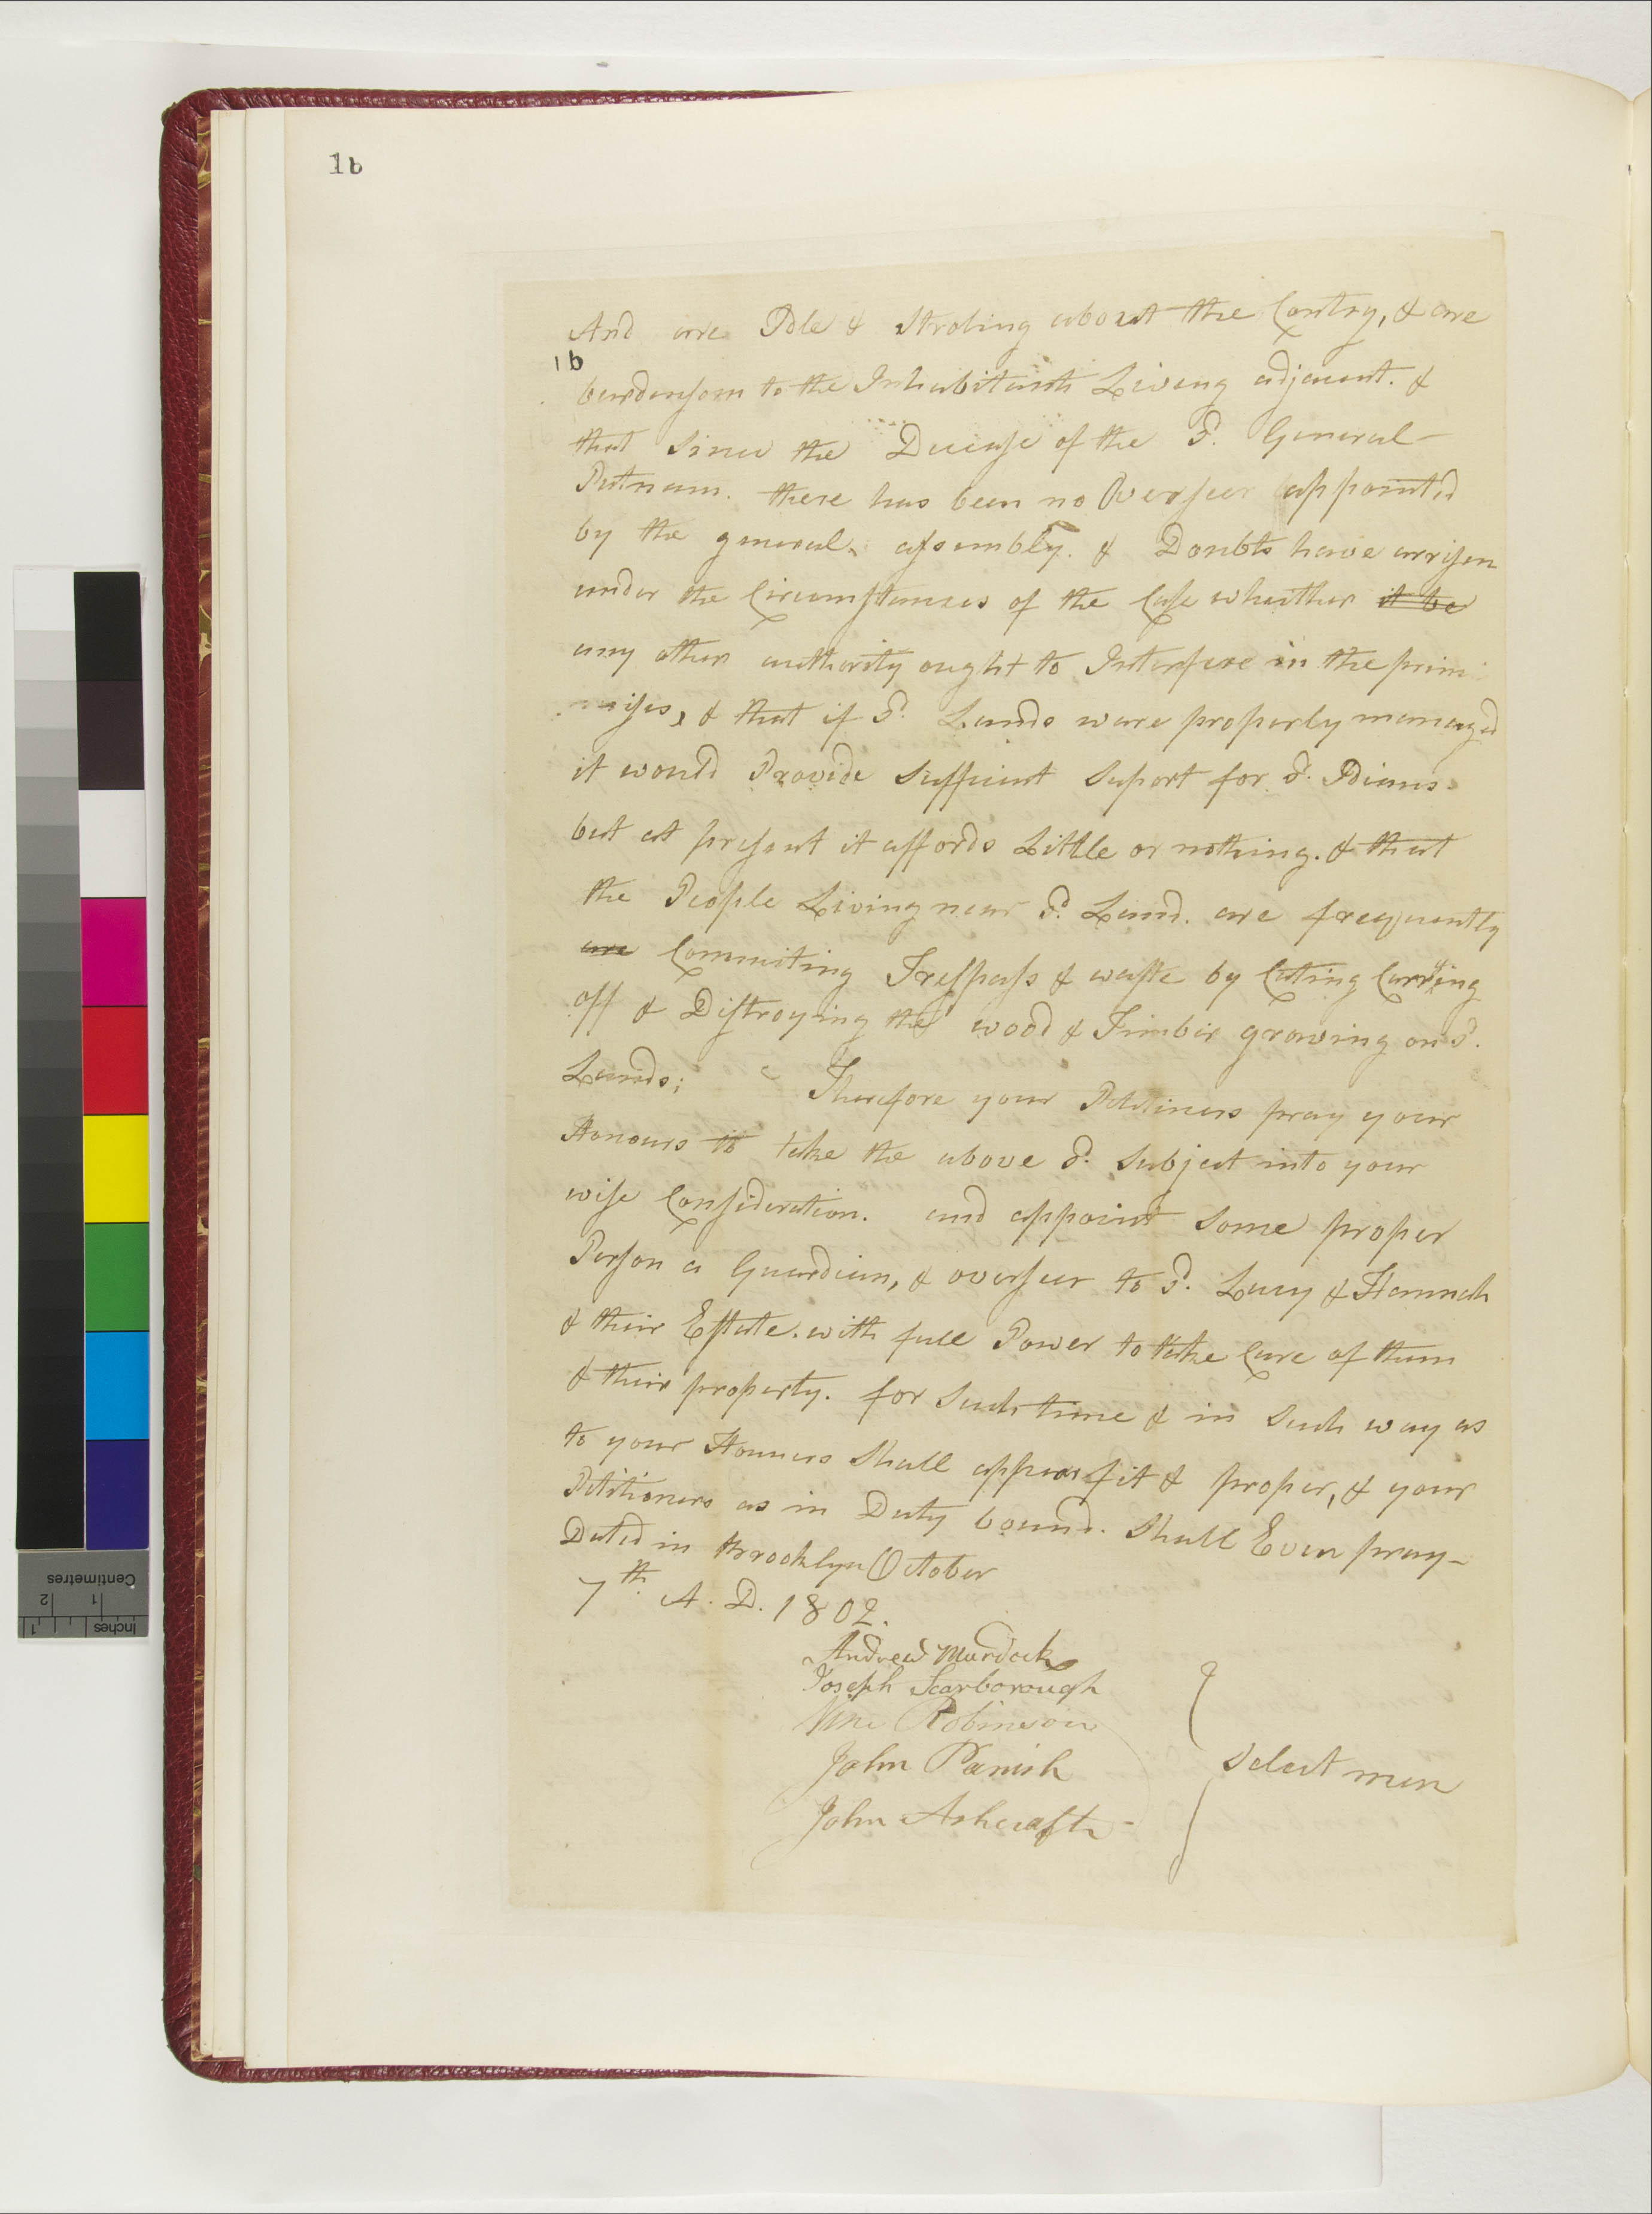 1b
And are Idle & Stroling about the Contry, & are
1b
burdensom to the Inhabitants Living adjacent. &
that Since the Decease of the Sd. General
Putnam. there has been no Overseer appointed
by the general assembly. & Doubts have arrisen
under the Circumstances of the Case wheither it be
any other authority ought to Interfere in the prim
ises, & that if Sd. Lands ware properly managed
it would Provide Suffient Suport for Sd. Idians.
but at present it affords Little or nothing. & that
the People Living near Sd. Land. are frequently
are Commiting Trespass & waste by Cuting Carrying
off & Distroying the wood & Timber growing on Sd.
Lands; Therefore your Petitiners pray your
Honours to take the above Sd. Subject into your
wise Consideration. and appoint Some proper
Person a Guardian, & overseer to Sd. Lucy & Hannah
& their Estate. with full Power to take Care of them
& their property. for Such time & in Such way as
to your Honners Shall appear fit & proper, & your
Petitioners as in Duty bound. Shall Ever pray-
Dated in Brooklyn October
7th. A. D. 1802.
Andrew Murdock
Joseph Scarborough
Vine Robinson
John Parrish
John Ashcraft
Select men
Centimetres
1 2
Inches
1